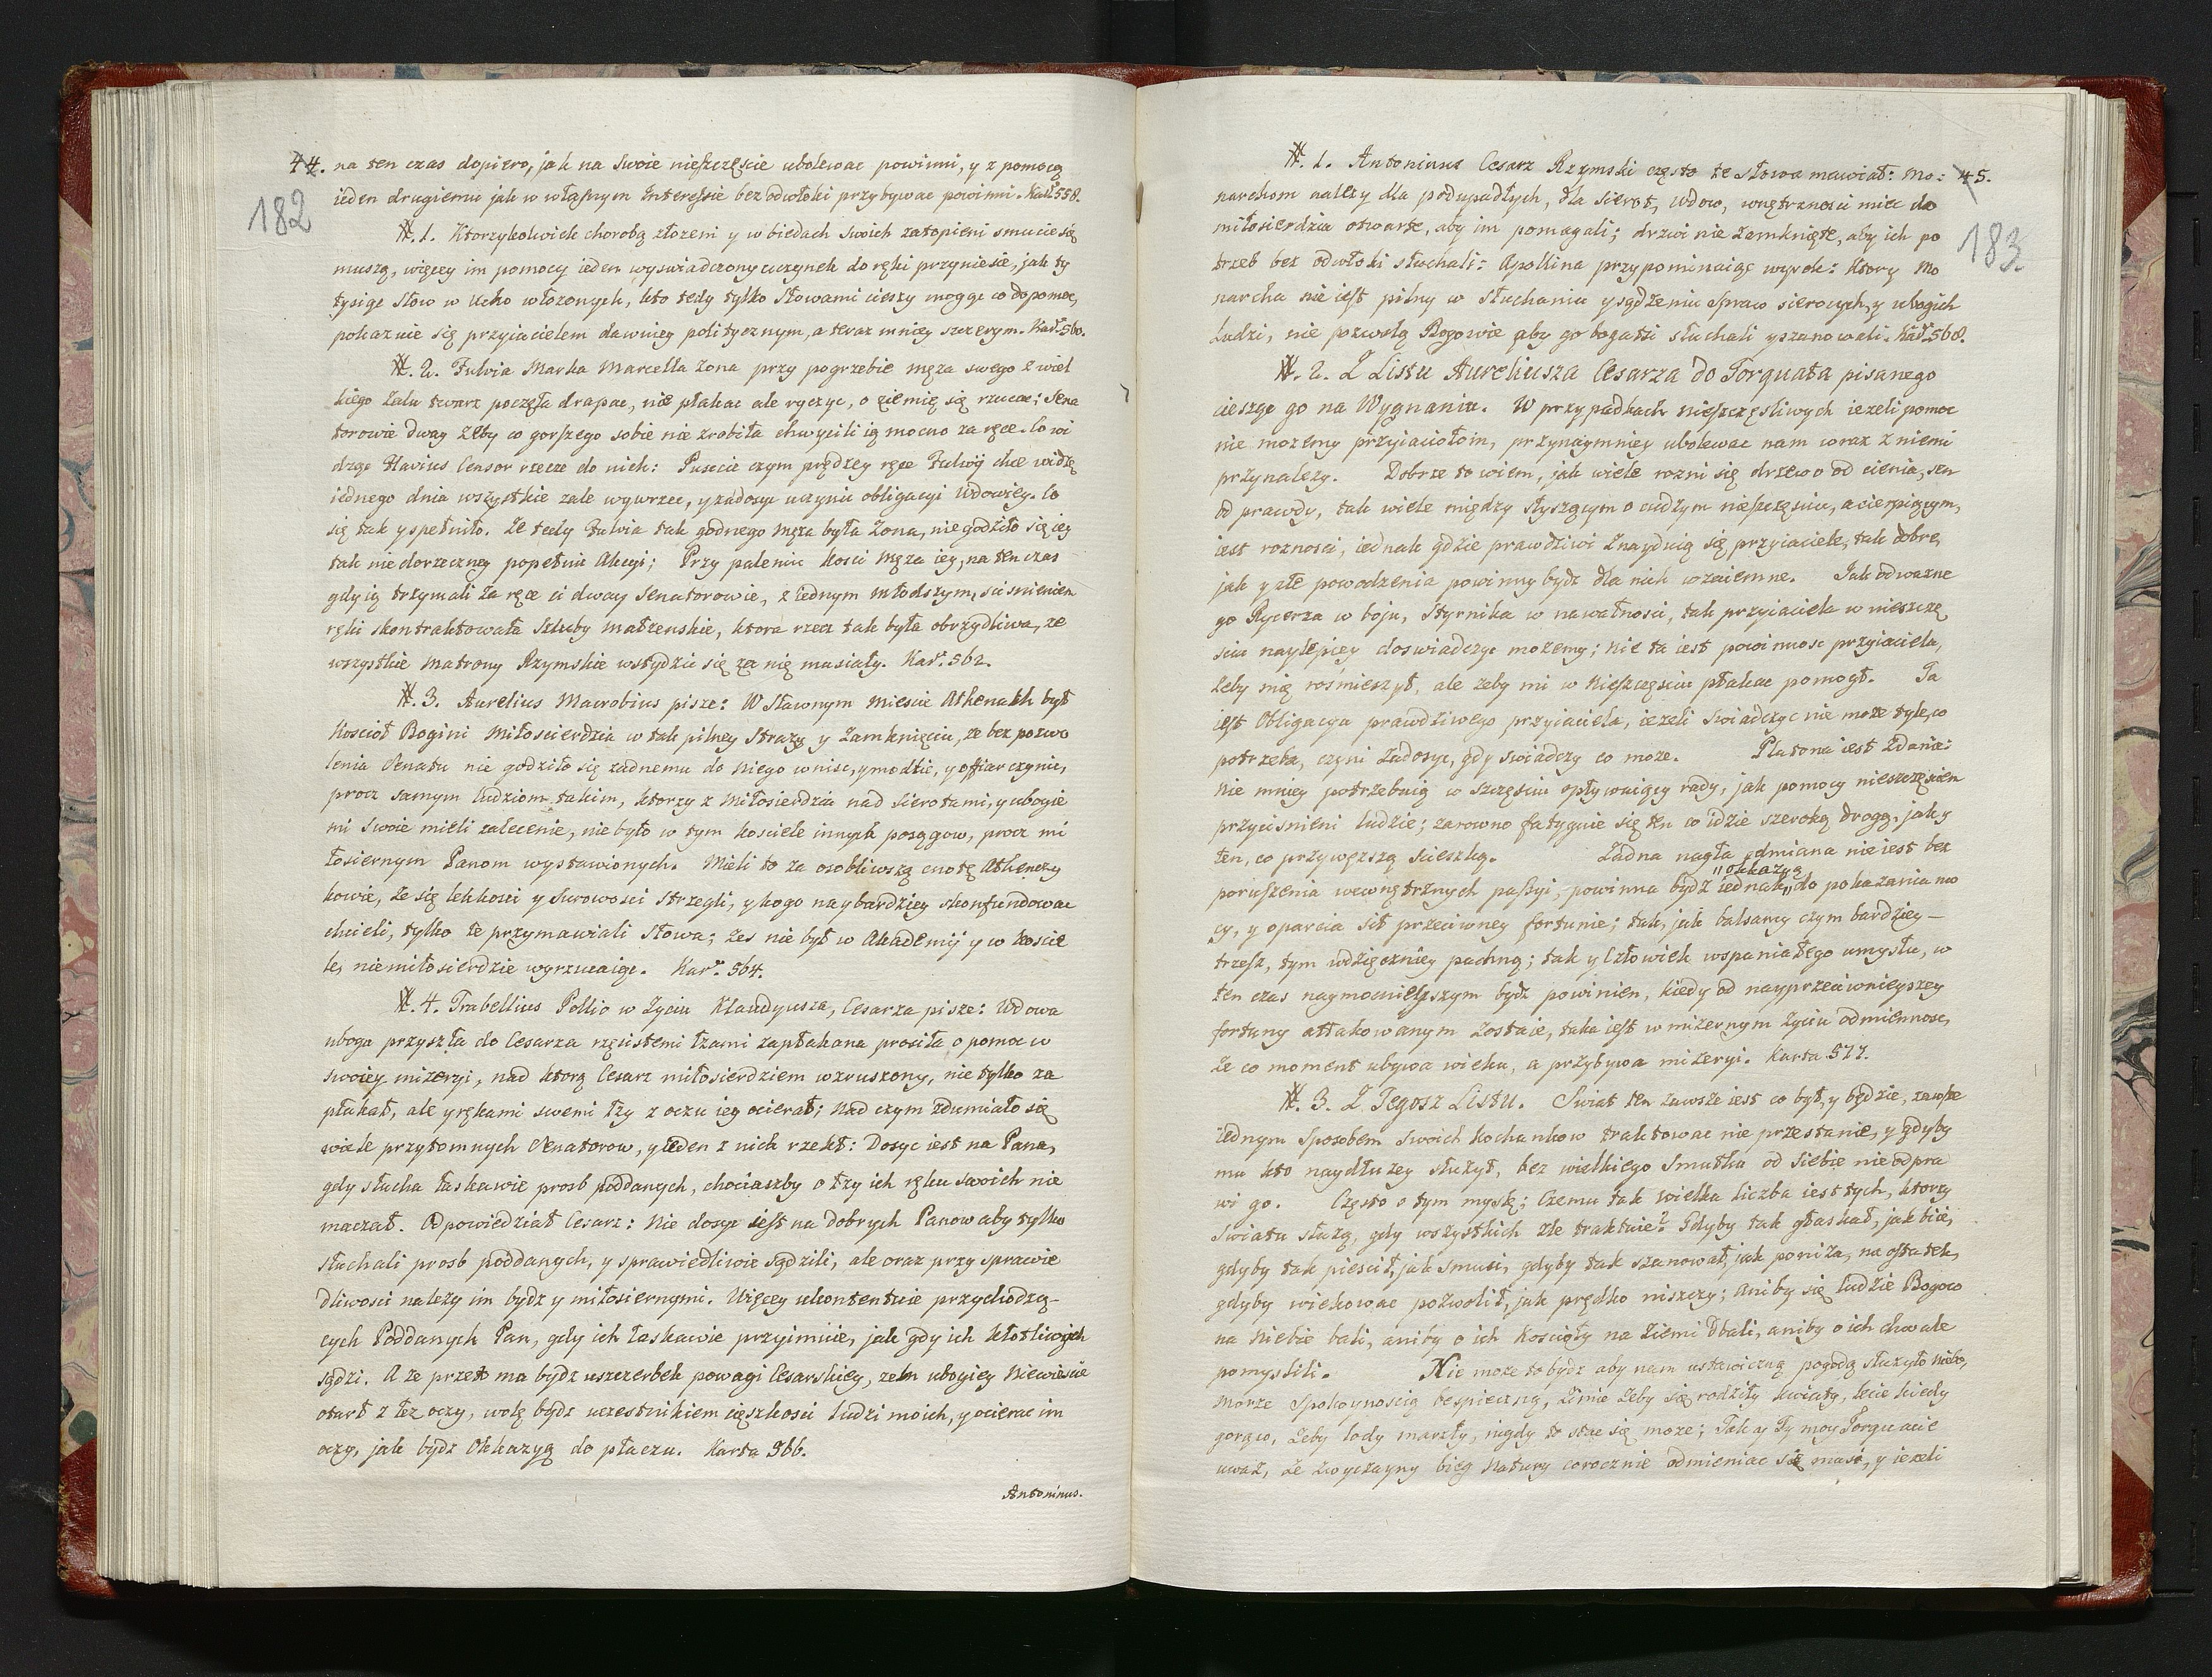 44. na ten czas dopiero, jak na swoie nieszczęscie ubolewac powinni, y z pomocą
182
ieden drugiemu jak w własnym Interessie bez odwłoki przybywac powinni. Kar. 558.
N. 1. Ktorzykolwiek chorobą złozeni y w biedach swoich zatopieni smucic się
muszą, więcey im pomocy ieden wyswiadczony uczynek do ręki przyniesie, jak ty
tysiąc słow w ucho włozonych, kto tedy tylko słowami cieszy mogąc co dopomoc,
pokazuie się przyiacielem dawniey politycznym, a teraz mniey szczerym. Kar. 560.
N. 2. Fulvia Marka Marcella zona przy pogrzebie męza swego z wiel
kiego zalu twarz poczęła drapac, nie płakac ale ryczyc, o ziemię się rzucac; Sena
torowie dway zeby co gorszego sobie nie zrobiła chwycili ią mocno za ręce. Co wi
dząc Flavius Censor rzecze do nich: Puscie czym prędzey ręce Fulwij chce widzę
iednego dnia wszystkie zale wywrzec, y zadosyc uczynic obligacyi Wdowiey. Co
się tak y spełniło. Ze tedy Fulvia tak godnego męza była zona, nie godziło się iey
tak nie dorzeczney popełnic Akcyi; Przy paleniu kosci męza iey, na ten czas
gdy ią trzymali za ręce ci dway Senatorowie, z iednym młodszym, scisnieniem
ręki skontraktowała szluby małzenskie, ktora rzecz tak była obrzydliwa, ze
wszystkie matrony Rzymskie wstydzic się za nię musiały. Kar. 562.
N. 3. Aurelius Macrobius pisze: W sławnym miescie Athenach był
Kosciół Bogini Miłosierdzia w tak pilney strazy y zamknięciu, ze bez pozwo
lenia Senatu nie godziło się zadnemu do niego wnisc, y modlic, y offiar czynic,
procz samym ludziom takim, ktorzy z miłosierdzia nad sierotami, y ubogie
mi swoie mieli zalecenie, nie było w tym kosciele innych posągow, procz mi
łosiernym Panom wystawionych. Mieli to za osobliwszą cnotę Athenczy
kowie, ze się lekkosci y surowosci strzegli, y kogo naybardziey skonfundowac
chcieli, tylko te przymawiali słowa; zes nie był w Akademij y w koscie
le, niemiłosierdzie wyrzucaiąc. Kar. 564.
N. 4. Trabellius Pollio w Zyciu Klaudyusza, Cesarza pisze: Wdowa
uboga przyszła do Cesarza rzęsistemi łzami zapłakana prosiła o pomoc w
swoiey mizeryi, nad ktorą Cesarz miłosierdziem wzruszony, nie tylko za
płakał, ale y rękami swemi łzy z oczu iey ocierał; Nad czym zdumiało się
wiele przytomnych Senatorow, y ieden z nich rzekł: Dosyc iest na Pana,
gdy słucha łaskawie prosb poddanych, chociaszby o łzy ich ręku swoich nie
maczał. Odpowiedział Cesarz: Nie dosyc iest na dobrych Panow aby tylko
słuchali prosb poddanych, y sprawiedliwie sądzili, ale oraz przy sprawie
dliwosci nalezy im bydz y miłosiernymi. Więcey ukontentuie przychodzą-
cych Poddanych Pan, gdy ich łaskawie przyimuie, jak gdy ich kłotliwych
sądzi. A ze przeto ma bydz uszczerbek powagi Cesarskiey, zem ubogiey Niewiescie
otarł z łez oczy, wolę bydz uczestnikiem cięszkosci ludzi moich, y ocierac im
oczy, jak bydz Okkazyą do płaczu. Karta 566.
Antoninus.
N. 1. Antoninus Cesarz Rzymski często te słowa mawiał: Mo: 45.
183
narchom nalezy dla podupadłych, dla sierot, wdow, wnętrznosci miec do
miłosierdzia otwarte, aby im pomagali; drzwi nie zamknięte, aby ich po
trzeb bez odwłoki słuchali: Apollina przypominaiąc wyrok: Ktory Mo
narcha nie iest pilny w słuchaniu y sądzeniu spraw sierocych, y ubogich
Ludzi, nie pozwolą Bogowie aby go bogatsi słuchali y szanowali. Kar. 568.
N. 2. Z Listu Aureliusza Cesarza do Torquata pisanego
ciesząc go na Wygnaniu. W przypadkach nieszczęsliwych iezeli pomoc
nie mozemy przyiaciołom, przynaymniey ubolewac nam wraz z niemi
przynalezy. Dobrze to wiem, jak wiele rozni się drzewo od cienia, sen
od prawdy, tak wiele między słyszącym o cudzym nieszczęsciu, a cierpiącym,
iest roznosci, iednak gdzie prawdziwi znayduią się przyiaciele, tak dobre,
jak y złe powodzenia powinny bydz dla nich wzaiemne. Jak odwazne
go Rycerza w boju, styrnika w nawałnosci, tak przyiaciela w nieszczę
sciu naylepiey doswiadczyc mozemy; nie ta iest powinnosc przyiaciela,
zeby mię rosmieszył, ale zeby mi w nieszczęsciu płakac pomogł. Ta
iest Obligacya prawdziwego przyiaciela, iezeli swiadczyc nie moze tyle, co
potrzeba, czyni zadosyc, gdy swiadczy co moze. Platona iest zdanie:
Nie mniey potrzebuią w szczęsciu opływaiący rady, jak pomocy nieszczęsciem
przycisnieni ludzie; zarowno fatyguie się ten co idzie szeroką drogą, jak y
ten, co przywęzszą scieszką. Zadna nagła odmiana nie iest bez
"okkazyą
poruszenia wewnętrznych passyi, powinna bydz iednak " do pokazania mo
cy, y oparcia sił przeciwney fortunie; tak, jak balsamy czym bardziey –
trzesz, tym wdzięczniey pachną; tak y Człowiek wspaniałego umysłu, w
ten czas naymocnieyszym bydz powinien, kiedy od nayprzeciwnieyszey
fortuny attakowanym zostaie, taka iest w mizernym zyciu odmiennosc,
ze co moment ubywa wieku, a przybywa mizeryi. Karta 577.
N. 3. Z Tegosz Listu. Swiat ten zawsze iest co był, y będzie, zawsze
iednym sposobem swoich kochankow traktowac nie przestanie, y gdyby
mu kto naydłuzey słuzył, bez wielkiego smutku od siebie nie odpra
wi go. Często o tym myslę; Czemu tak wielka liczba iest tych, ktorzy
swiatu słuzą, gdy wszystkich zle traktuie? Gdyby tak głaskał, jak bie,
gdyby tak piescił, jak smuci, gdyby tak szanował, jak poniza, na ostatek,
gdyby wiekowac pozwolił, jak prędko niszczy; aniby się ludzie Bogow
na niebie bali, aniby o ich koscioły na ziemi dbali, aniby o ich chwale
pomyslili. Nie moze to bydz aby nam ustawiczną pogodą słuzyło niebo,
morze spokoynoscią bespieczną, zimie zeby się rodziły kwiaty, lecie kiedy
gorąco, zeby lody marzły, nigdy to stac się moze; Tak y Ty moy Torquacie
uwaz, ze zwyczayny bieg Natury corocznie odmieniac się musi, y iezeli